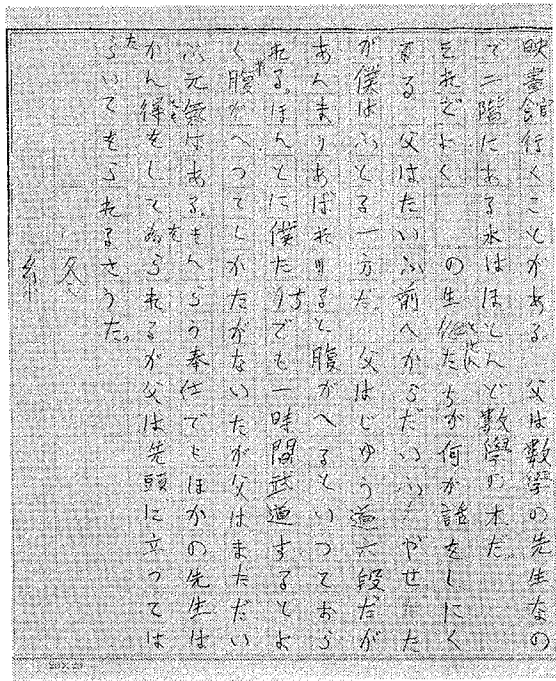 映畫館行くことがある 父は數學の先生なの
で二階にある本はほとんど數學の本だ。
それでよく の生徒たちが何か話をしにく
る 父はだいぶ前へからだいぶやせた
が僕はふとる一方だ。 父はじゅう道六段だが
あんまりあばれすると腹がへるといつておら
れる。ほんとに僕たちでも一時間武道するとよ
く腹がへつてしかたがないだが父はまだだい
ぶ元氣はある。きんらう奉仕でもほかの先生は
かん得をして居られるが父は先頭に立つては
たらいてをられるさうだ。